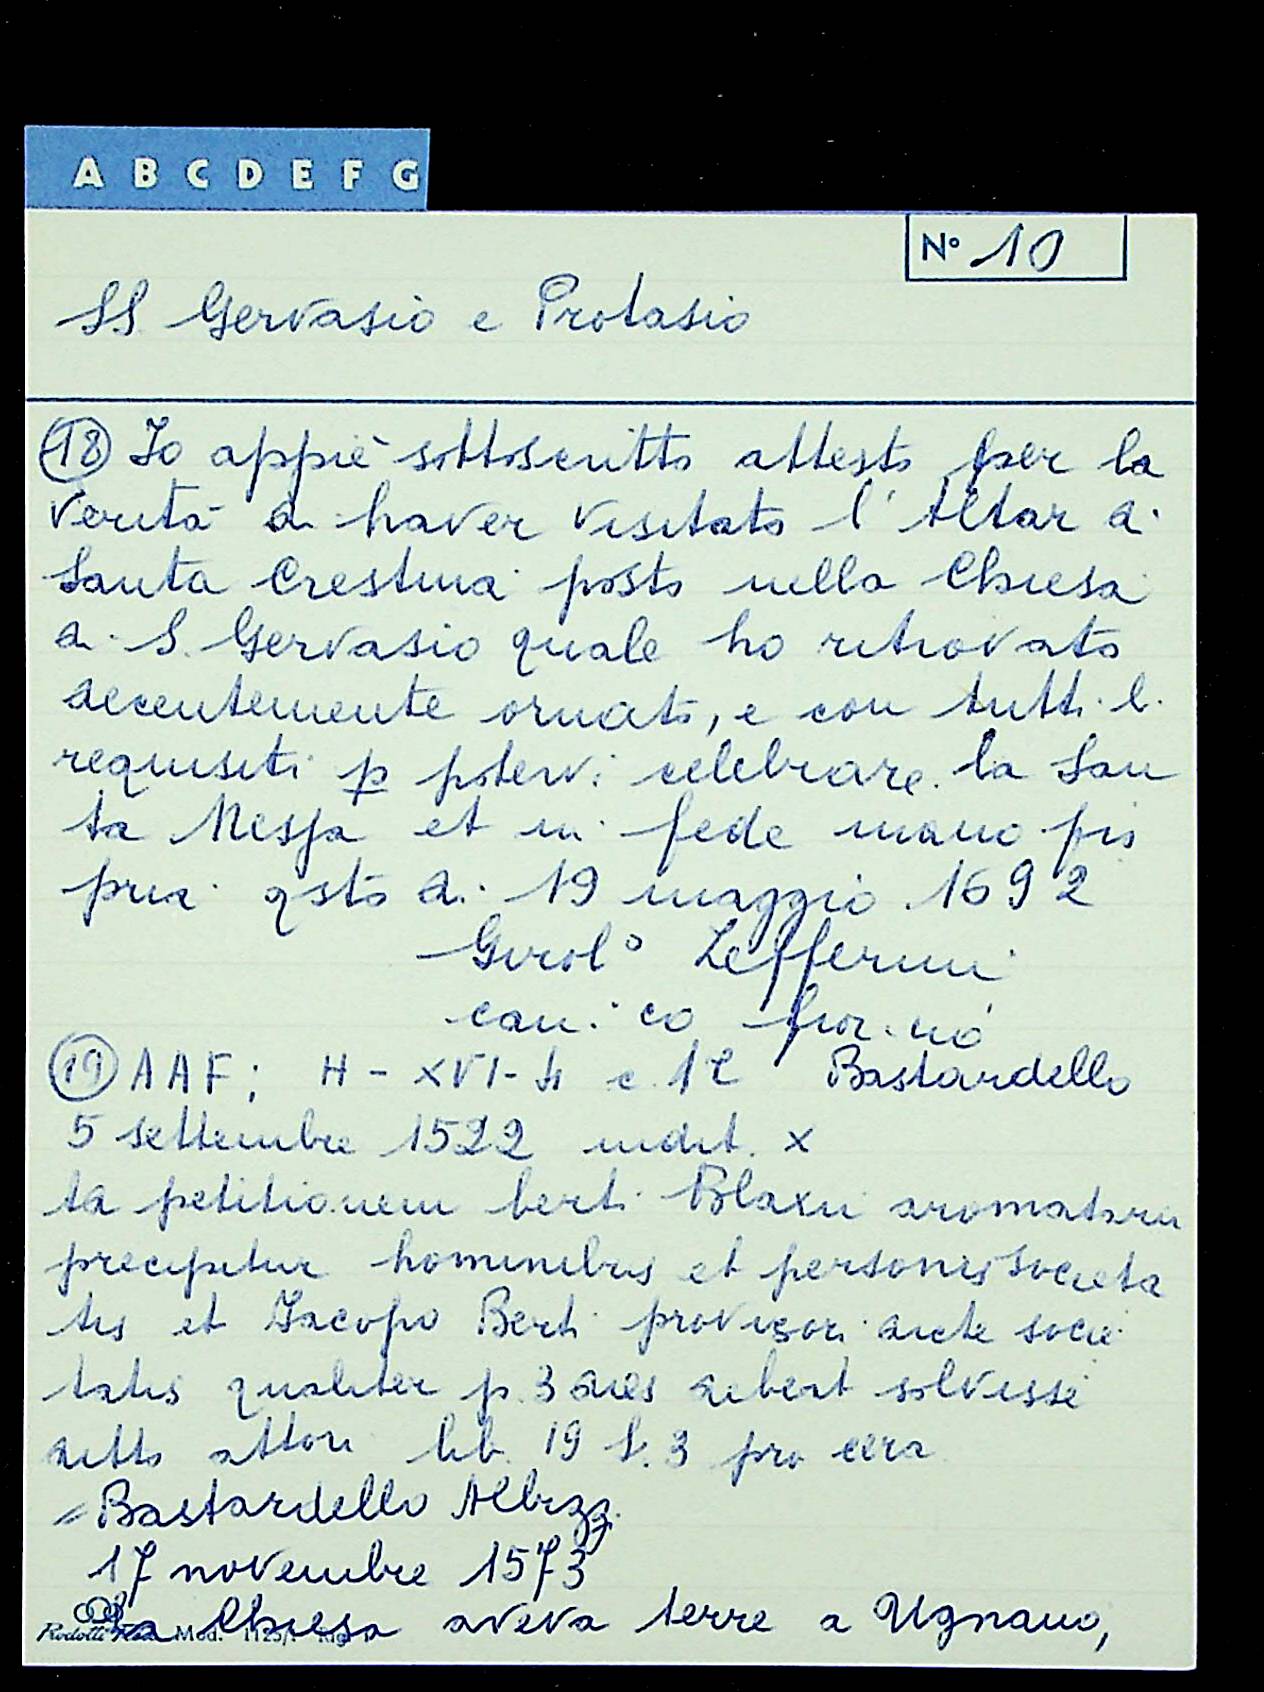 A B C D E F G
N° 10
SS Gervasio e Protasio
(18) Io appiè sottoscritto attesto per la
verità di haver visitato l'Altar di
Santa Crestina posto nella Chiesa
di S. Gervasio quale ho ritrovato
decentemente ornato, e con tutti li
requisiti p potervi celebrare la San
ta Messa et in fede mano pro
pria qsto dì 19 maggio 1692
Girol° Zefferini
can.co fior.no
(19) AAF; H - XVI - 4 c. 12 Bastardello
5 settembre 1522 indit. X
ta petitionem berti Blaxii aromatarii
precipitur hominibus et personis societa
tis et Iacopo Berti provisori dicte socie
tatis qualiter p. 3 dies debeat solvisse
ditto attori lib. 19 s. 3 pro cera
= Bastardello Albizzi
17 novembre 1573
La Chiesa aveva terre a Ugnano,
Mod. 1125/